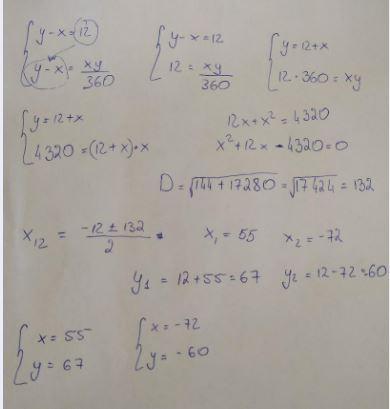 { y - x = 12
{ y - x = xy/360
{ y - x = 12
{ 12 = xy/360
{ y = 12 + x
{ 12 · 360 = xy
{ y = 12 + x
{ 4320 = (12 + x) · x
12x + x² = 4320
x² + 12x - 4320 = 0
D = √144 + 17280 = √17424 = 132
x₁₂ = (-12 ± 132)/2
x₁ = 55 x₂ = -72
y₁ = 12 + 55 = 67 y₂ = 12 - 72 = -60
{ x = 55
{ y = 67
{ x = -72
{ y = -60